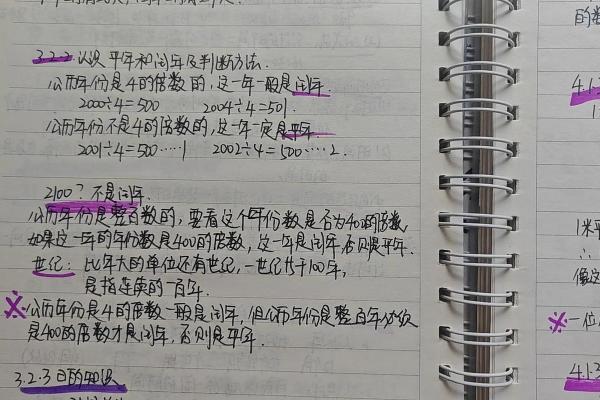 3.2.2 认识平年和闰年及判断方法.
公历年份是4的倍数的,这一年一般是闰年.
2000÷4=500 2004÷4=501.
公历年份不是4的倍数的,这一年一定是平年.
2001÷4=500……1 2002÷4=500……2.
2100?不是闰年.
公历年份是整百数的,要看这个年份数是否为400的倍数,
如果这一年的年份数是400的倍数,这一年是闰年,否则是平年.
世纪:比年大的单位还有世纪,一世纪等于100年,
是指连续的一百年.
※公历年份是4的倍数一般是闰年,但公历年份是整百年份必须
是400的倍数才是闰年,否则是平年.
3.2.3 日的认识
的数
4.1.
1米
∴
像这
※一位
4.1.3